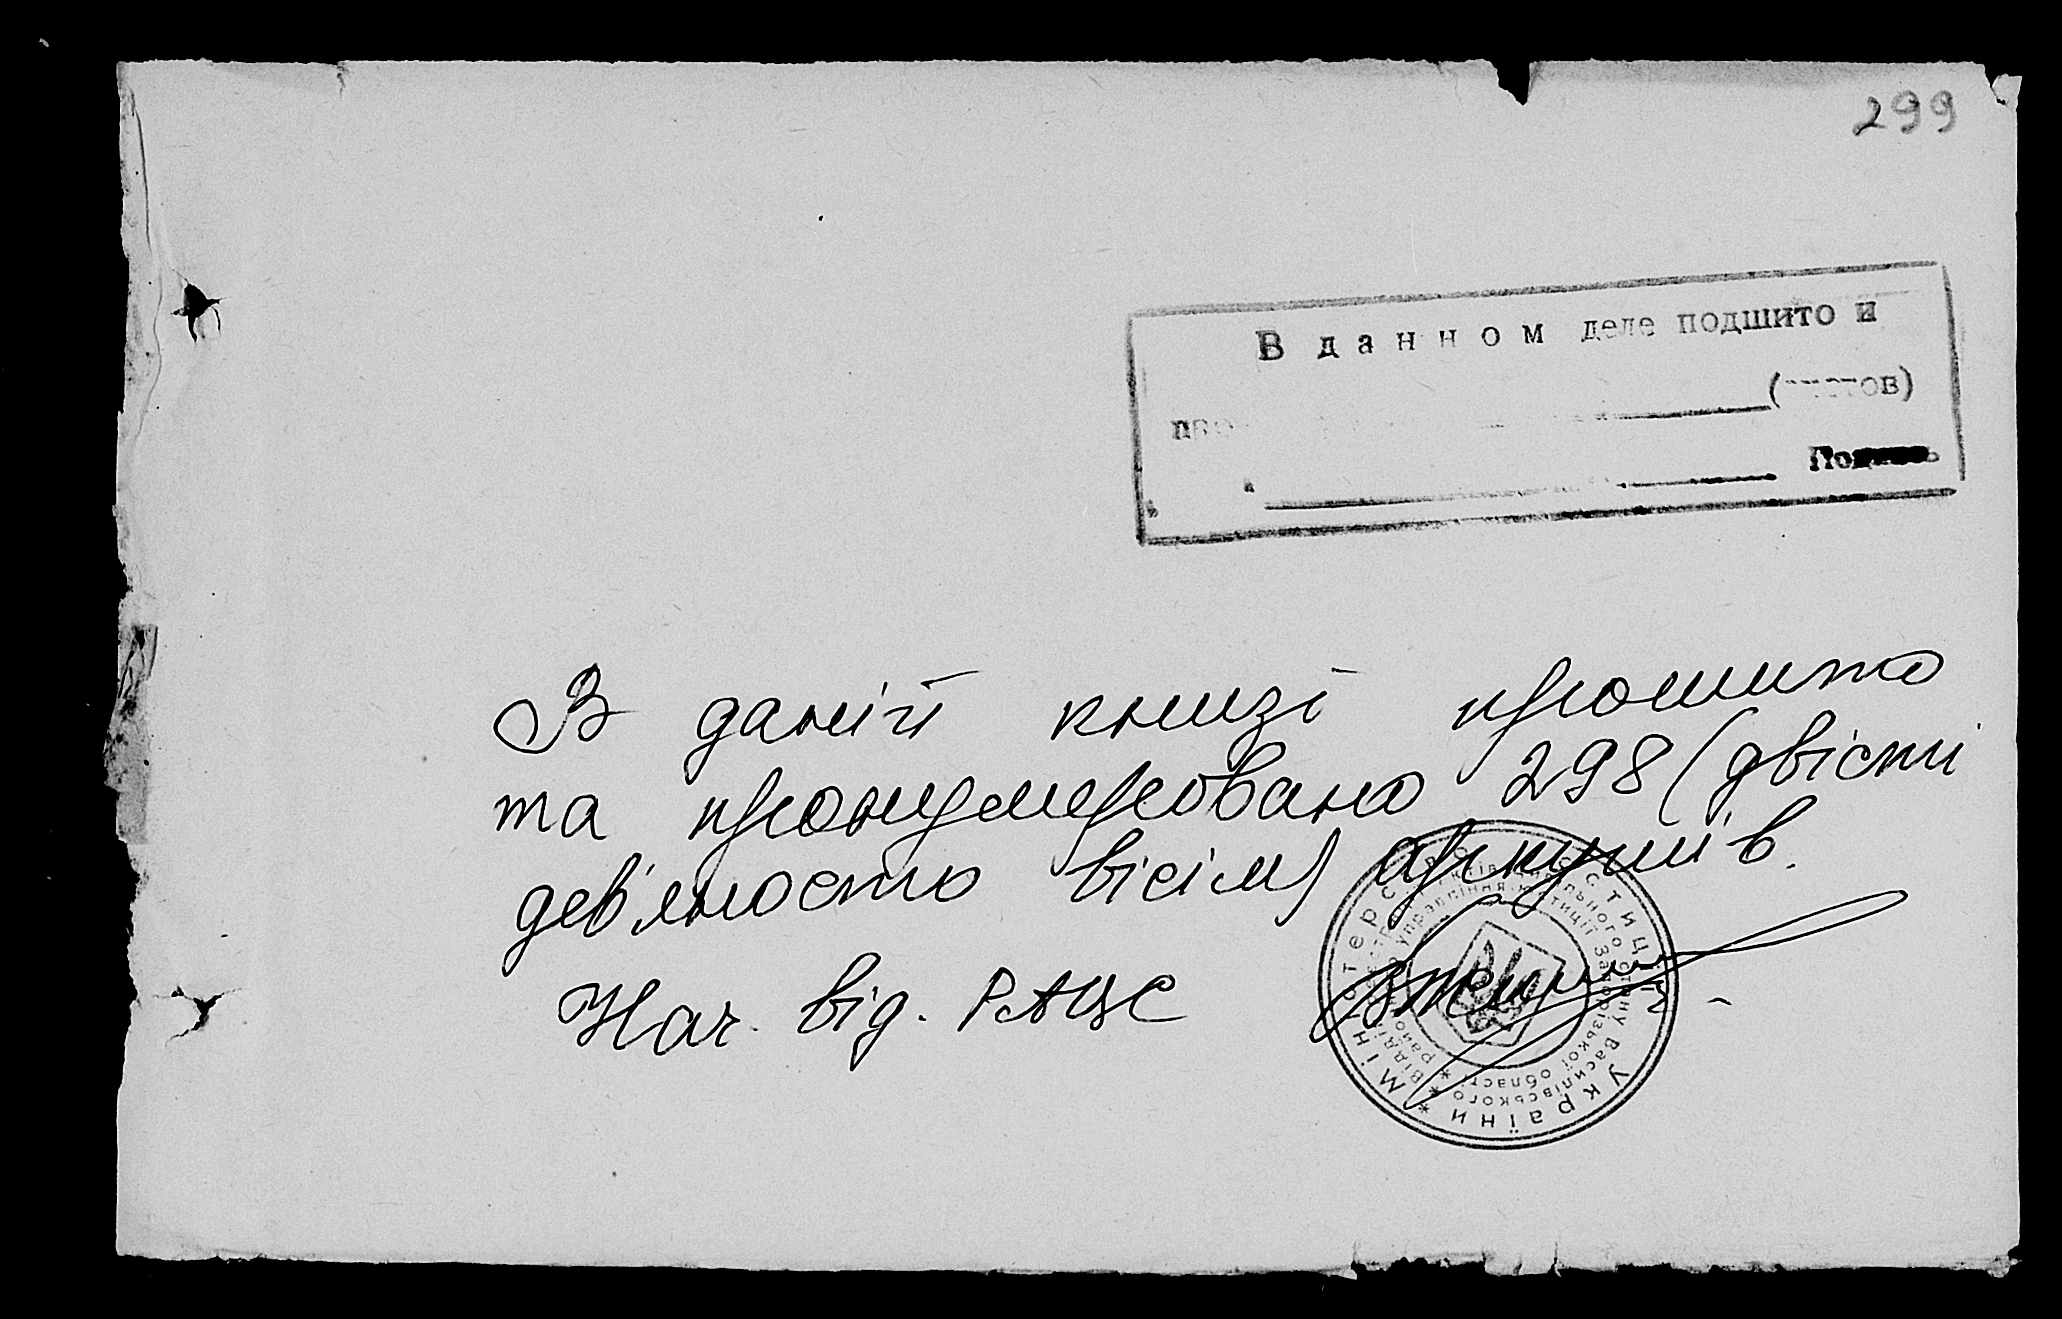 299
В данном деле подшито и
(листов)
Подпись
В даній книзі прошито
та пронумеровано 298 (двісти
дев'яносто вісім) аркушів.
Нач. від. РАЦС
Міністерство юстиції України
Василівського
районного управління юстиції Запорізької області